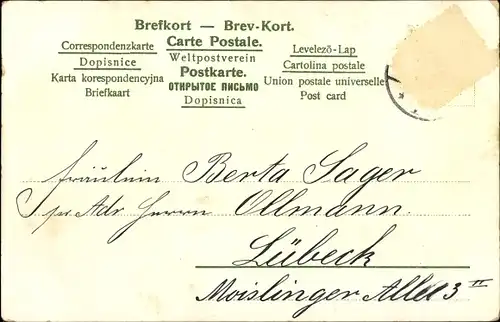 Brefkort — Brev-Kort.
Correspondenzkarte Carte Postale. Levelező-Lap
Dopisnice Weltpostverein Cartolina postale
Karta korespondencyjna Postkarte. Union postale universelle
Briefkaart ОТКРЫТОЕ ПИСЬМО Post card
Dopisnica
Fräulein Berta Sager
pr. Adr. Herrn Ollmann.
Lübeck
Moislinger Allee 3 II